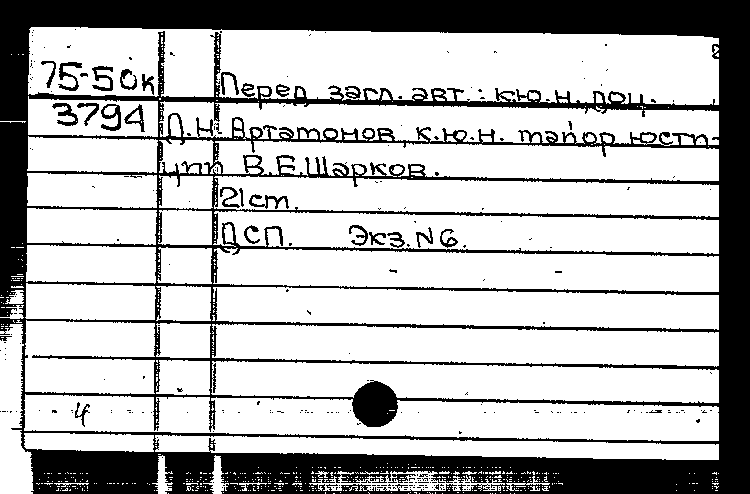 75-50к Перед загл. авт.: к.ю.н., доц.
3794 Д.Н. Артамонов, к.ю.н. майор юсти-
ции В.Е. Шарков.
21 см.
ДСП. Экз. N 6.
4